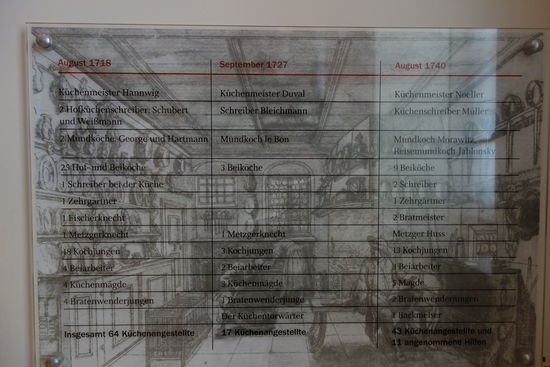 August 1718
Küchenmeister Hannwig
2 Hofküchenschreiber: Schubert
und Weißmann
2 Mundköche: George und Hartmann
25 Hof- und Beiköche
1 Schreiber bei der Küche
1 Zehrgärtner
1 Fischerknecht
1 Metzgerknecht
18 Kochjungen
4 Beiarbeiter
4 Küchenmägde
4 Bratenwenderjungen
Insgesamt 64 Küchenangestellte
September 1727
Küchenmeister Duval
Schreiber Bleichmann
Mundkoch le Bon
3 Beiköche
1 Metzgerknecht
3 Kochjungen
2 Beiarbeiter
3 Küchenmägde
1 Bratenwenderjunge
Der Küchentorwärter
17 Küchenangestellte
August 1740
Küchenmeister Noeller
Küchenschreiber Müller
Mundkoch Morawitz
Reisemundkoch Jablonsky
9 Beiköche
2 Schreiber
1 Zehrgärtner
2 Bratmeister
Metzger Huss
13 Kochjungen
3 Beiarbeiter
5 Mägde
2 Bratenwenderjungen
1 Backmeister
43 Küchenangestellte und
11 angenommene Hilfen